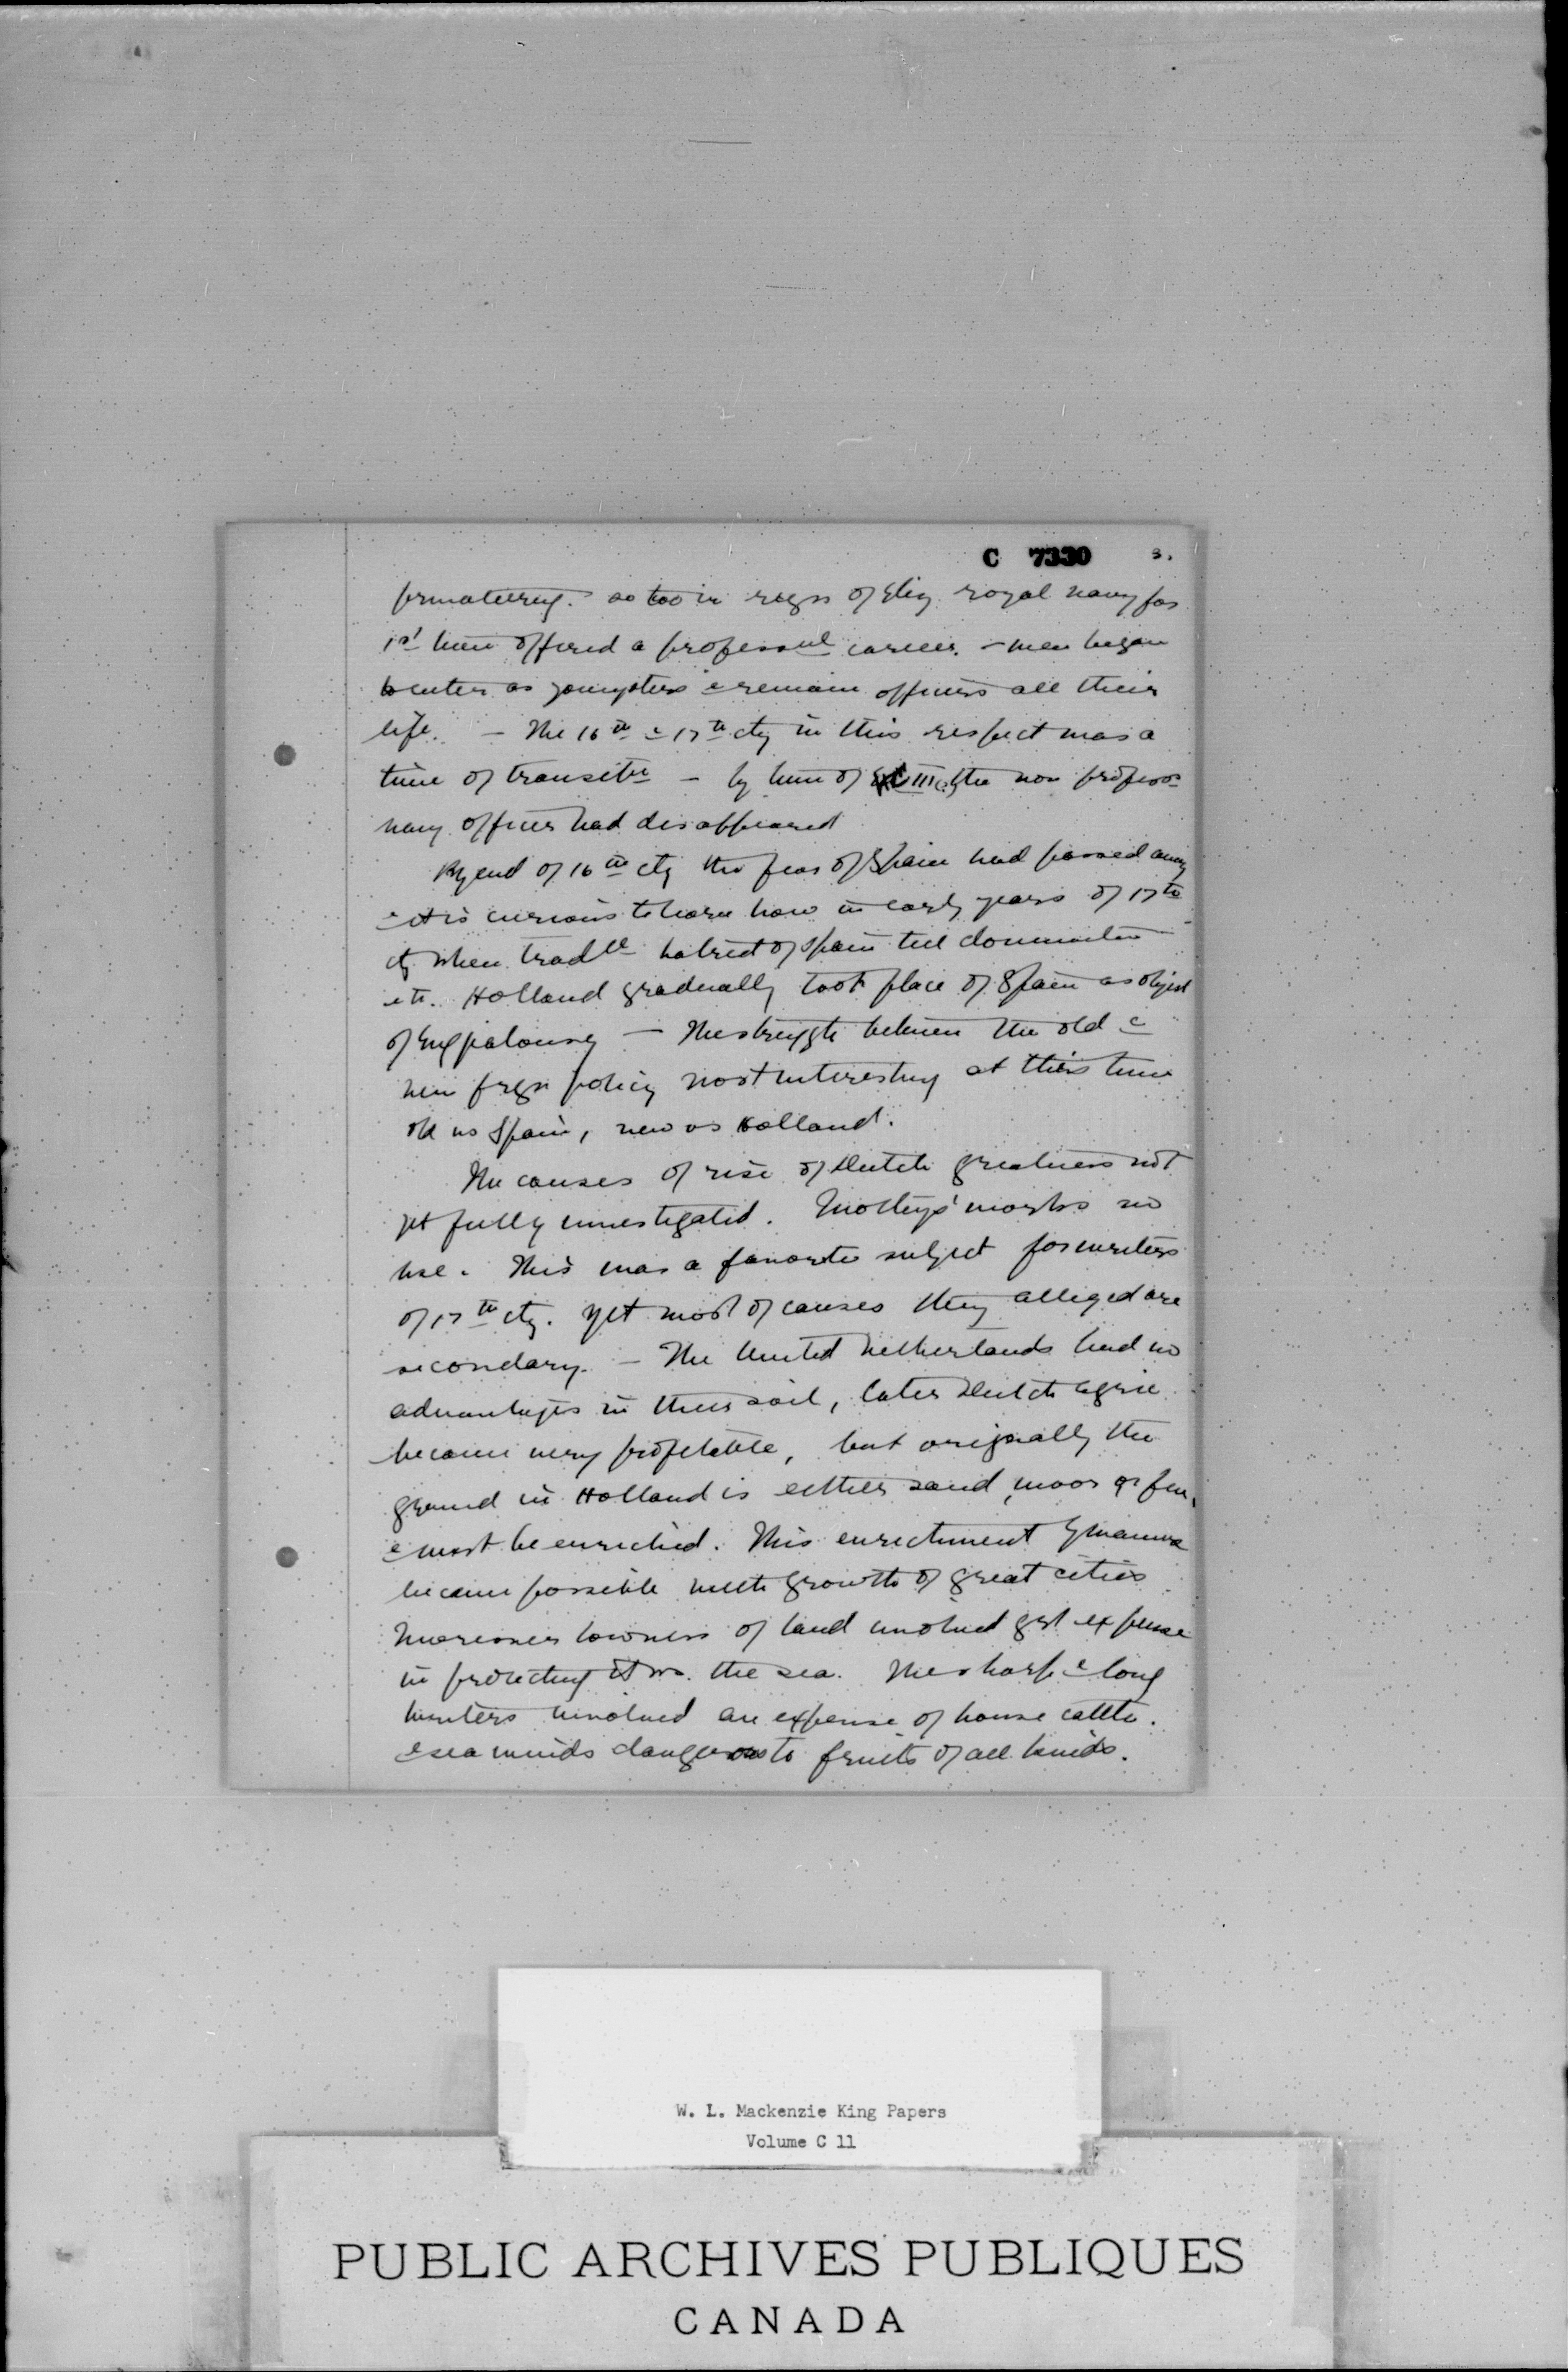 C 7330 3.
privateering. so too in reign of Eliz royal navy for
1st time offered a professnl career. – men began
to enter as youngsters & remain officers all their
life. – The 16th & 17th cty in this respect was a
time of transitn – by time of III the non profess
navy officer had disappeared
By end of 16th cty the fear of Spain had passed away
& it is curious to learn how in early years of 17th
cty when tradtl hatred of Spain still dominates
etc. Holland gradually took place of Spain as object
of Eng jealousy – The struggle between the old &
new forgn policy most interesting at this time
old vs Spain, new vs Holland.
The causes of rise of Dutch greatness not
yet fully investigated. Motley's works no
use. This was a favorite subject for writers
of 17th cty. Yet most of causes they alleged are
secondary. – The United Netherlands had no
advantages in their soil, later Dutch agric
became very profitable, but originally the
ground in Holland is either sand, moor or fen,
& must be enriched. This enrichment by manure
became possible with growth of great cities
Moreover lowness of land involved grt expense
in protecting it vs. the sea. The sharp & long
winters involved an expense of house cattle.
& sea winds dangerous to fruits of all kinds.
W. L. Mackenzie King Papers
Volume C 11
PUBLIC ARCHIVES PUBLIQUES
CANADA